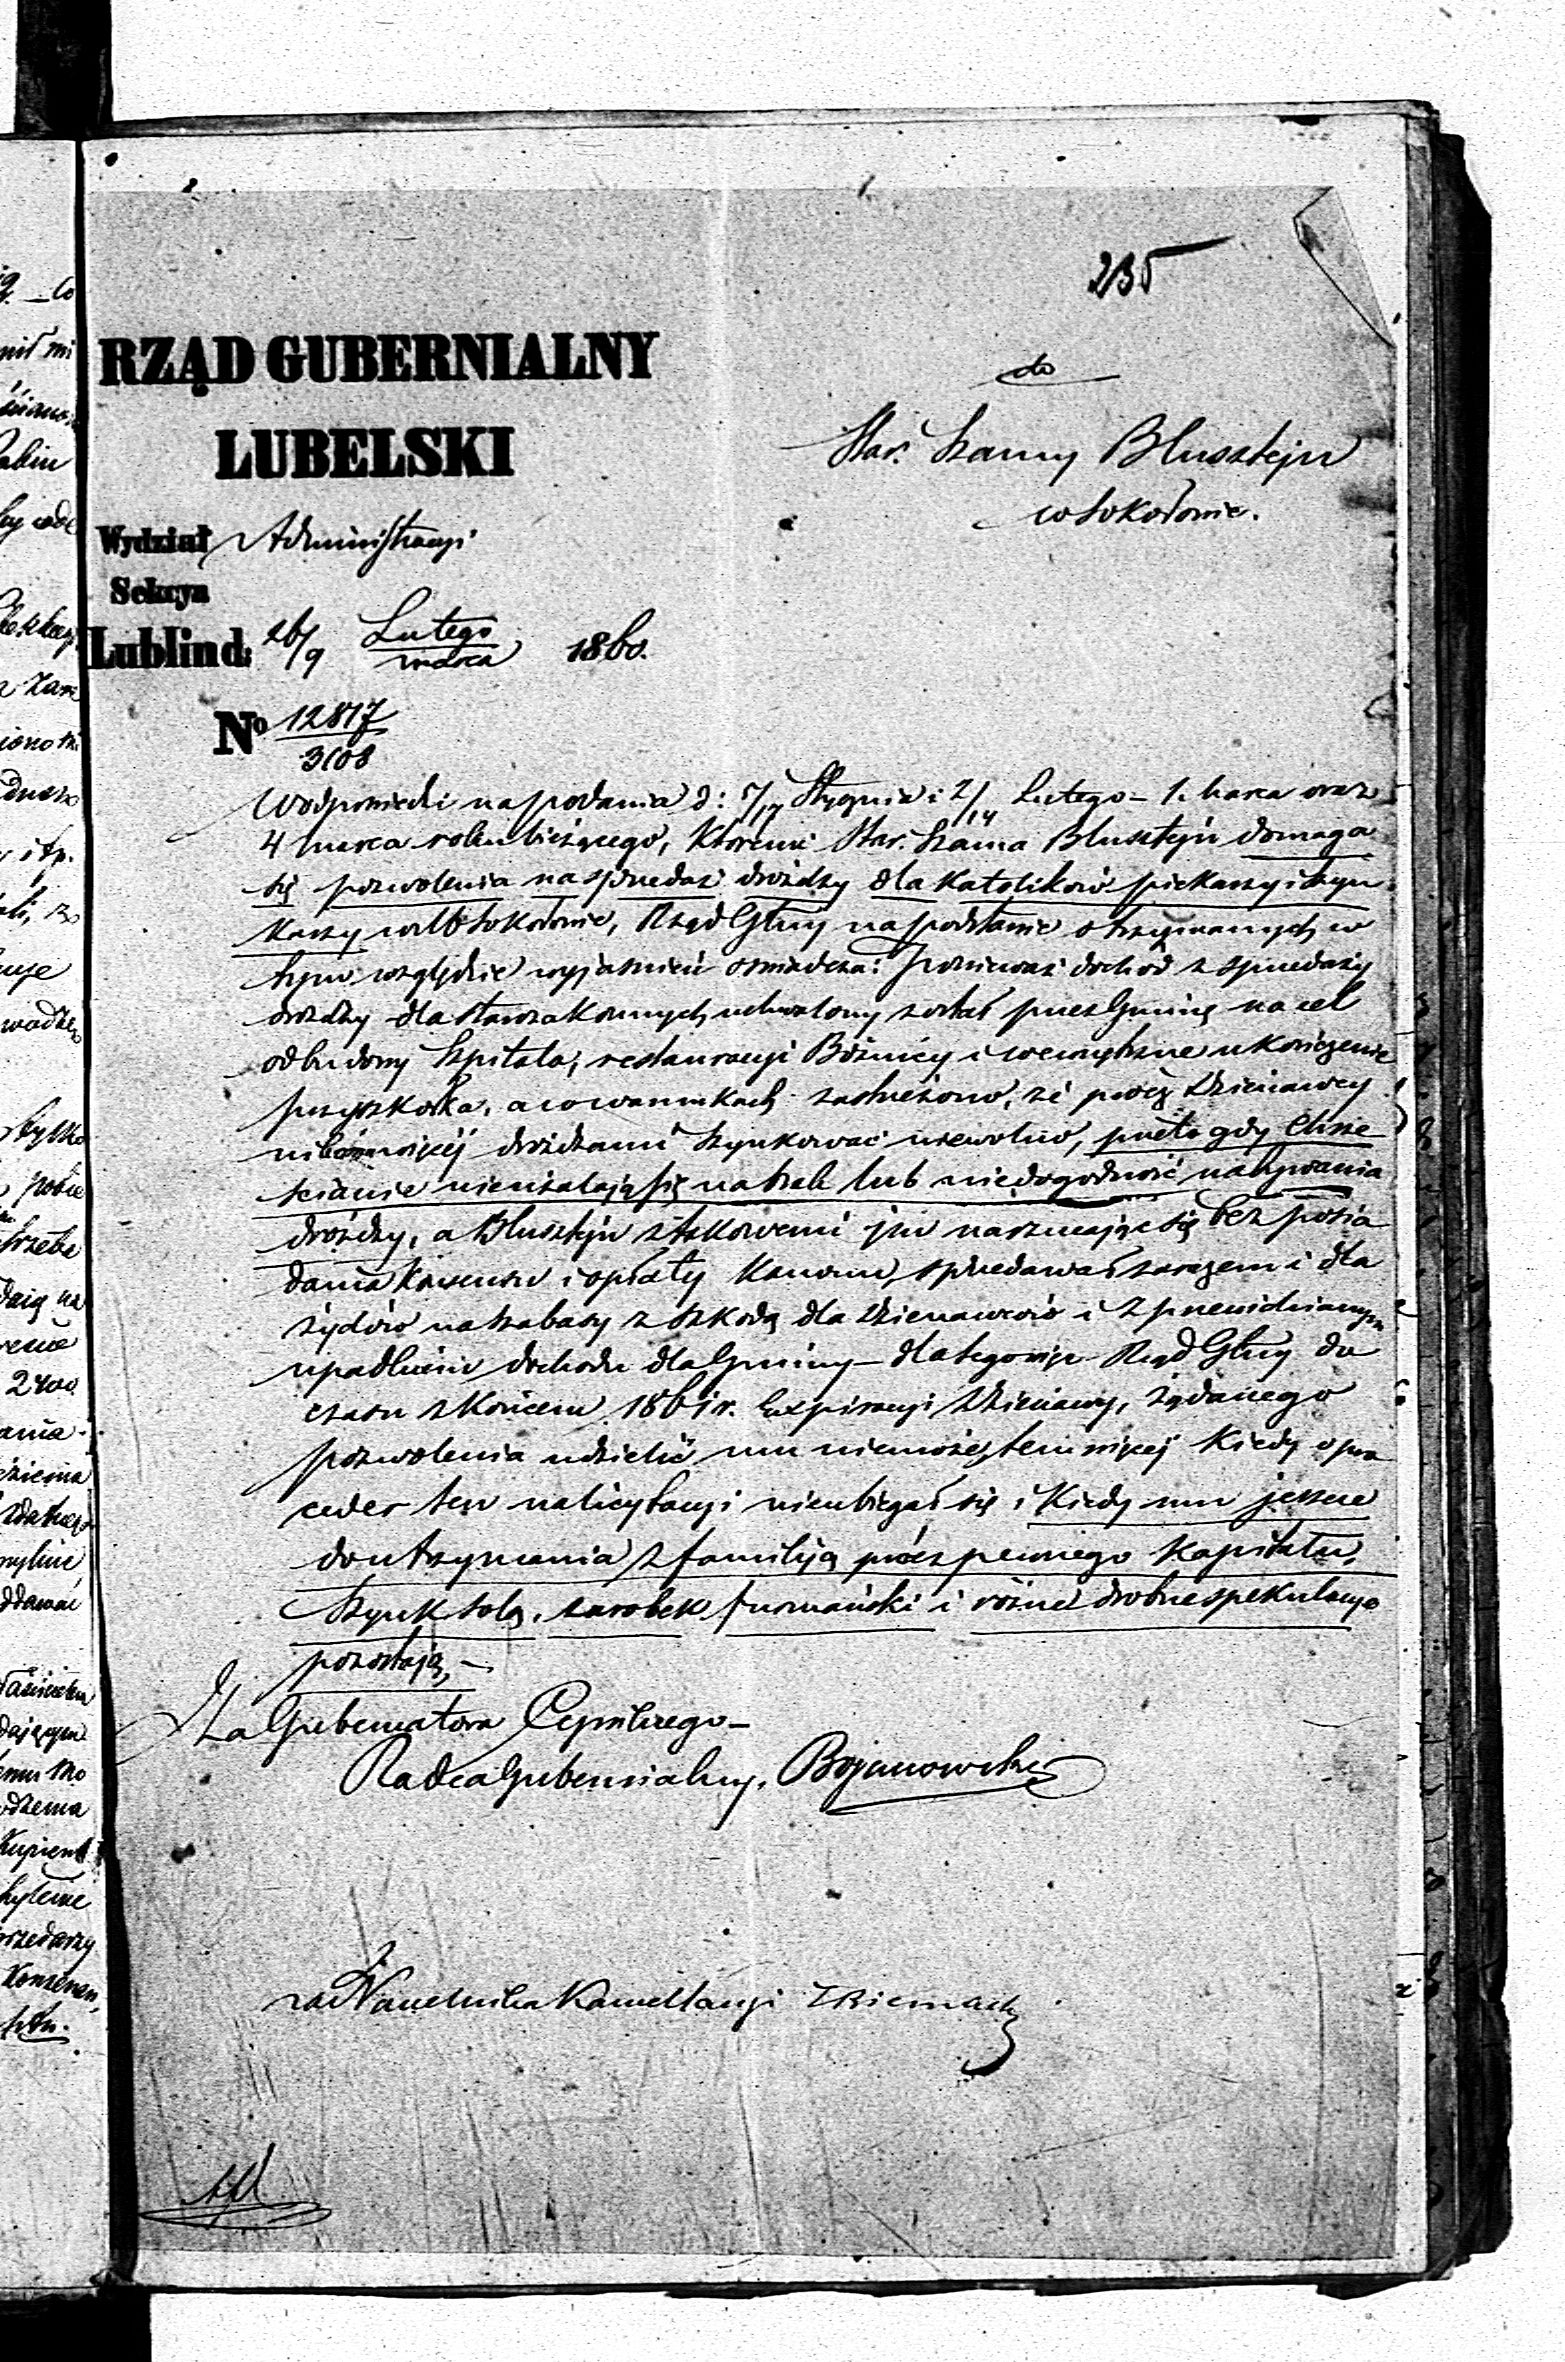 235
RZĄD GUBERNIALNY
LUBELSKI
do
Star. Szamy Blusztejn
w Sokołowie.
Wydział Administracyi
Sekcya
Lublin d: 26/9 Lutego/marca 1860.
No 12817/3108
W odpowiedzi na podania d: 5/17 Stycznia i 2/14 Lutego – 1. Marca oraz
4 Marca roku bieżącego, któremi Star. Szama Blusztejn domaga
się pozwolenia na sprzedaż drożdży dla Katolików piekarzy i szyn
karzy w Sokołowie, Rząd Glny na podstawie otrzymanych w
tym względzie wyjaśnień oświadcza: ponieważ dochód z sprzedaży
drożdży dla starozakonnych uchwalony został przez Gminę na cel
odbudowy Szpitala, restauracyi Bóżnicy i wewnętrzne ukończenie
przyszkołka, a w warunkach zastrzeżono, że prócz Dzierżawcy
nikomu więcej drożdżami szynkować niewolno, przeto gdy Chrze
ścianie nieużalają się na brak lub niedogodność nabywania
drożdży, a Blusztejn z takowemi im narzucając się bez posia
dania konsensu i opłaty kanonu, sprzedawał zarazem i dla
żydów na szabasy z szkodą dla Dzierżawców i z przewidzianym
upadkiem dochodu dla Gminy – dla tego więc Rząd Glny do
czasu z końcem 1861 r. Expiracyi Dzierżawy, żądanego
pozwolenia udzielić mu niemoże, tem więcej kiedy o pro
ceder ten na licytacyi nieubiegał się, i kiedy mu jeszcze
do utrzymania z familiją prócz pewnego kapitału,
szynk solą, zarobek furmański i różne drobne spekulacye
pozostają, –
Za Gubernatora Cywilnego –
Radca Gubernialny, Bojanowski
za Naczelnika Kancellaryi